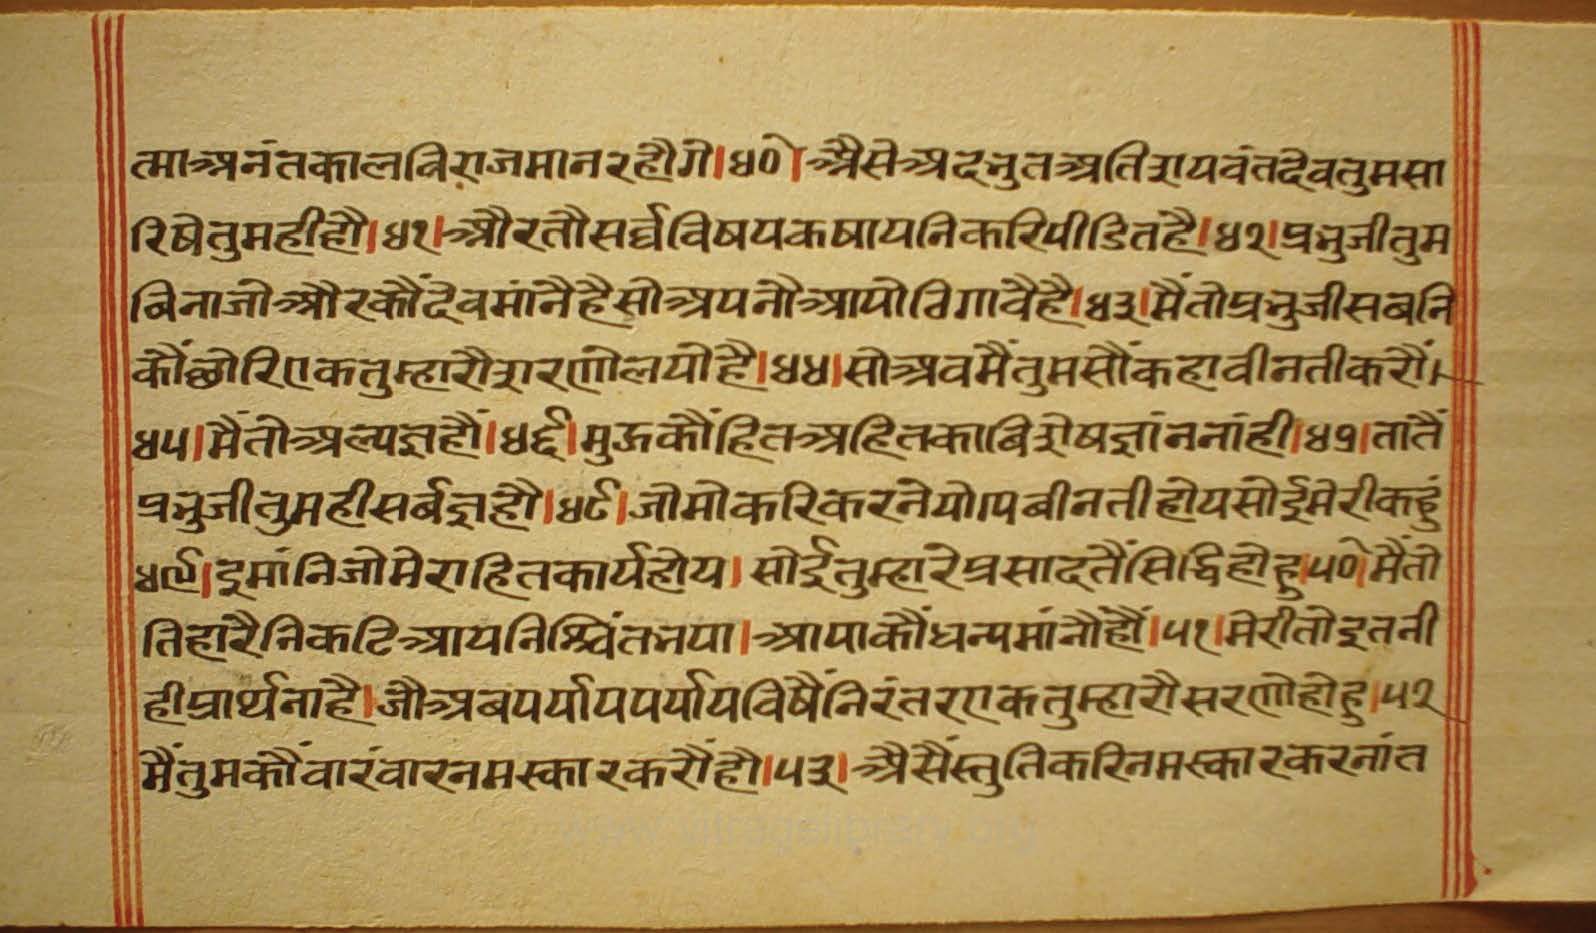 त्माअनंतकालविराजमानरहौगे।४०।अैसेअदभुतअतिशयवंतदेवतुमसा
रिषेतुमहीहौ।४१।औरतौसर्व्वविषयकषायनिकरिपीडितहै।४२।प्रभुजीतुम
बिनाजोऔरकौंदेवमांनैहैसोअपनौआपोठिगावैहै।४३।मैंतोप्रभुजीसबनि
कौंछोरिएकतुम्हारौशरणोलयोहै।४४।सोअवमैंतुमसौंकहावीनतीकरौं।
४५।मैंतोअल्पज्ञहौं।४६।मुझकौंहितअहितकाबिशेषज्ञांननांही।४७।तातैं
प्रभुजीतुमहीसर्बज्ञहौ।४८।जोमोकरिकरनेयोग्यबीनतीहोयसोईमेरीकहुं
४९।इमांनिजोमेराहितकार्यहोय।सोईतुम्हारेप्रसादतैंसिद्धिहोहु।५०।मैंतो
तिहारैनिकटिआयनिश्चिंतभया।आपाकौंधन्यमांनौंहौं।५१।मेरीतोइतनी
हीप्रार्थनाहै।जौअबपर्यायपर्यायविषैंनिरंतरएकतुम्हारौसरणोहोहु।५२
मैंतुमकौंवारंवारनमस्कारकरौंहौ।५३।अैसैंस्तुतिकरिनमस्कारकरनांत